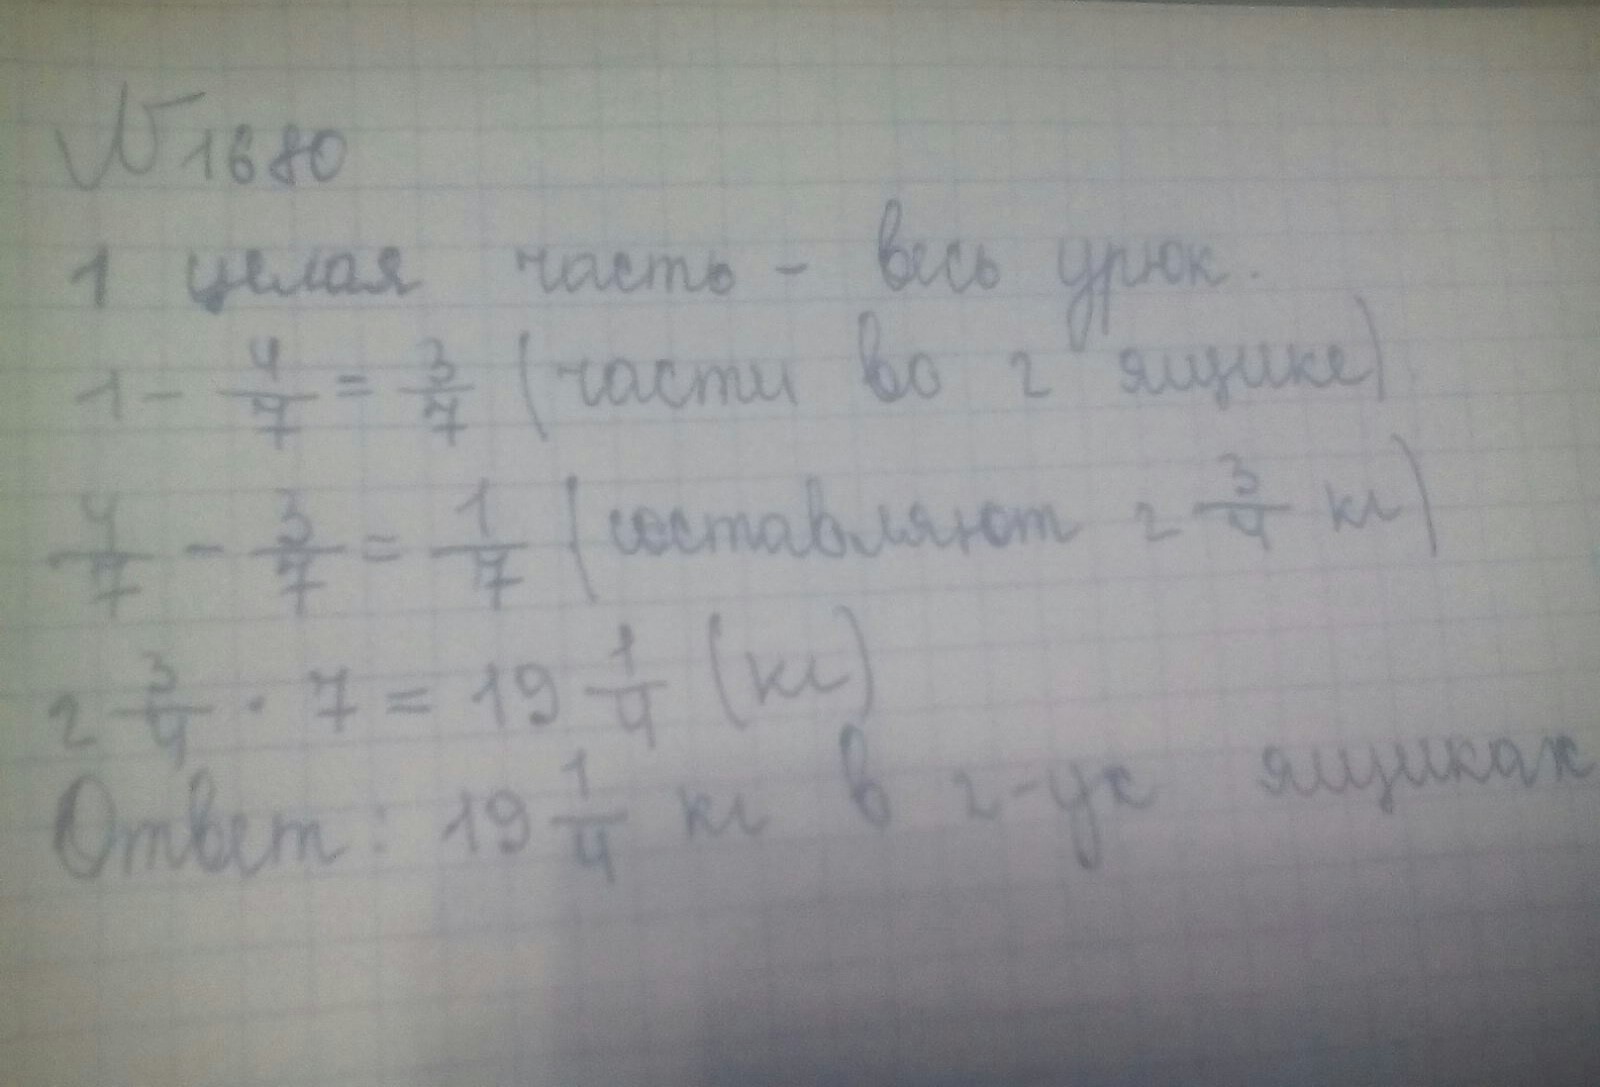 №1680
1 целая часть - весь урюк.
1 - 4/7 = 3/7 (части во 2 ящике)
4/7 - 3/7 = 1/7 (составляют 2 3/4 кг)
2 3/4 · 7 = 19 1/4 (кг)
Ответ: 19 1/4 кг в 2-ух ящиках